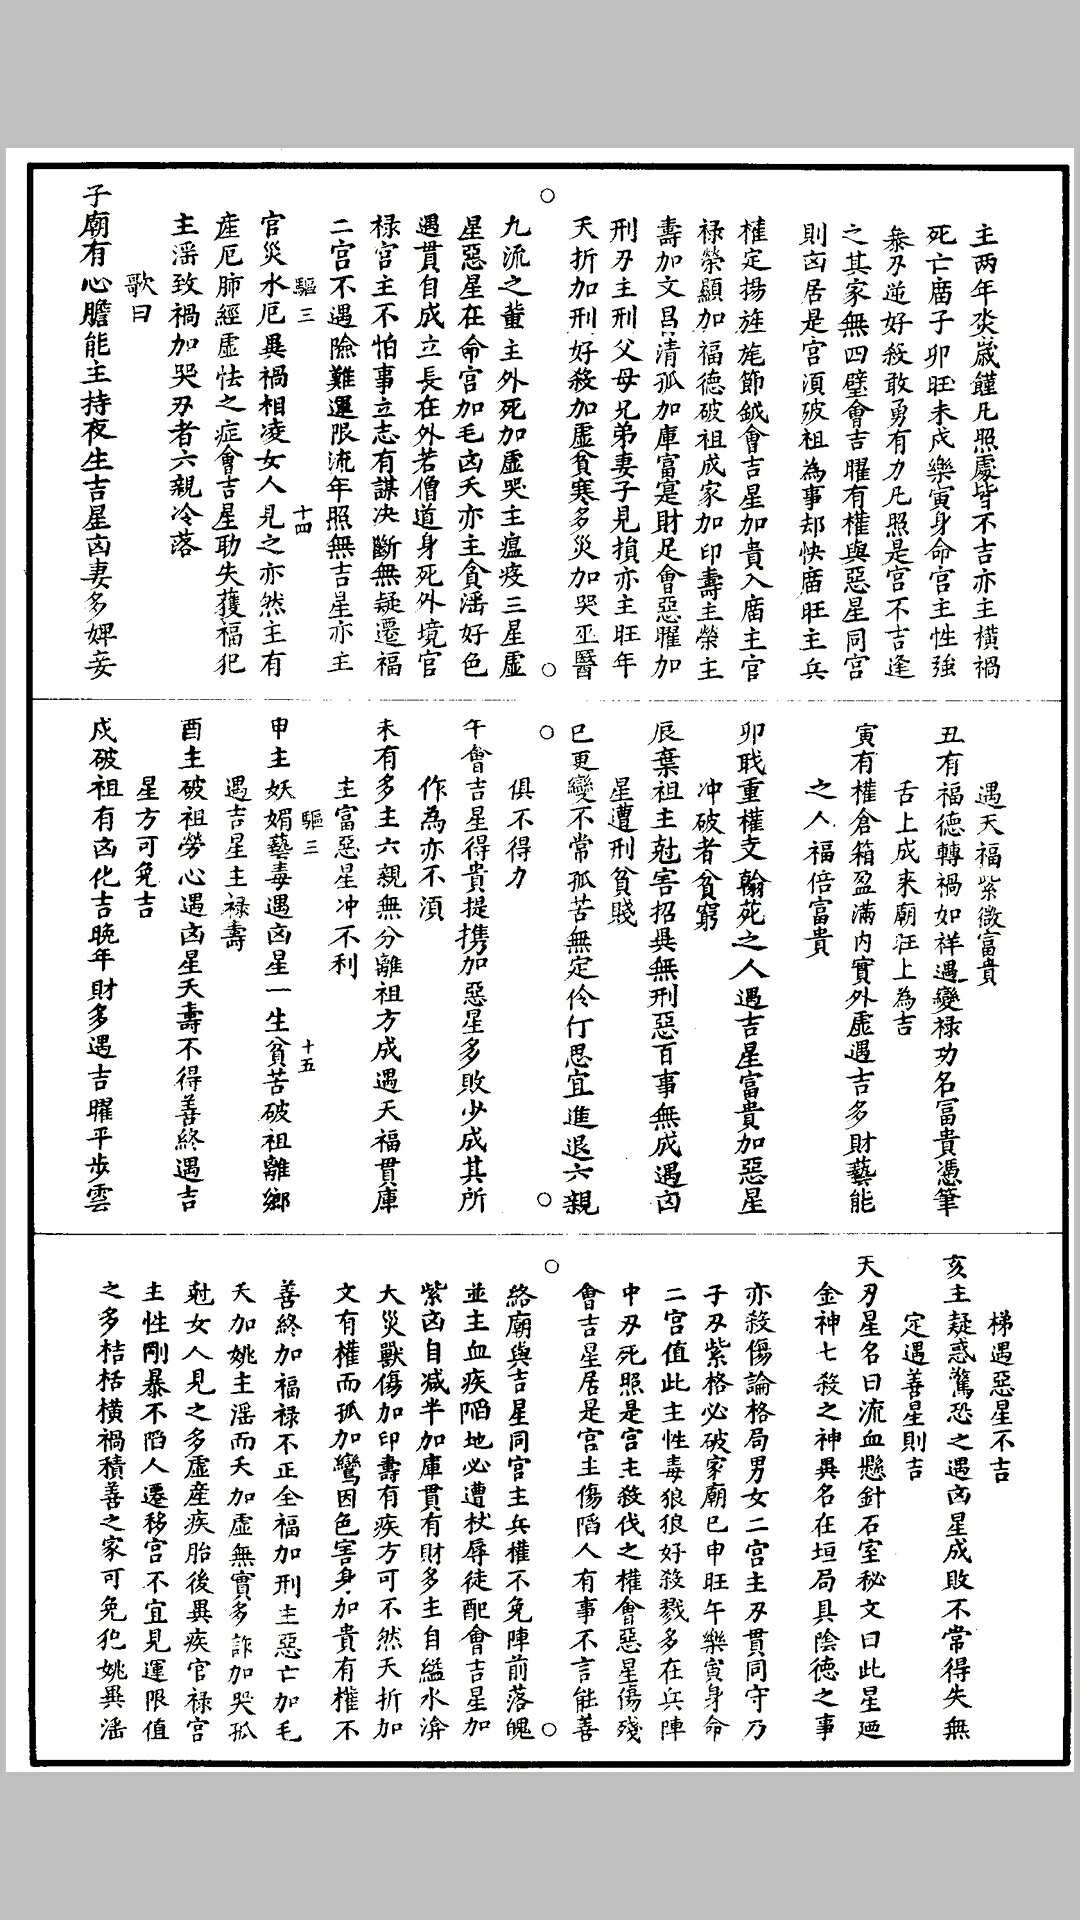 主两年灾歲饉凡照處皆不吉亦主橫禍
死亡廟子卯旺未戌樂寅身命宮主性強
暴刃逆好殺敢勇有力凡照是宮不吉逢
之其家無四壁會吉曜有權與惡星同宮
則凶居是宮須破祖為事却快廟旺主兵
權定揚旌旄節鉞會吉星加貴入廟主官
禄榮顯加福德破祖成家加印壽主榮主
壽加文昌清孤加庫富寔財足會惡曜加
刑刃主刑父母兄弟妻子見損亦主旺年
夭折加刑好殺加虛貧寒多災加哭巫醫
九流之輩主外死加虛哭主瘟疫三星虛
星惡星在命宮加毛凶夭亦主貪滛好色
遇貫自成立長在外若僧道身死外境官
禄宮主不怕事立志有謀决斷無疑遷福
二宮不遇險難運限流年照無吉星亦主
驅三 十四
官災水厄異禍相凌女人見之亦然主有
産厄肺經虛怯之症會吉星助失獲福犯
主滛致禍加哭刃者六親冷落
歌曰
子廟有心膽能主持夜生吉星凶妻多婢妾
丑有福德轉禍如祥遇變禄功名冨貴憑筆
遇天福紫微富貴
舌上成来廟汪上為吉
寅有權倉箱盈滿内實外虛遇吉多財藝能
之人福倍富貴
卯戢重權文翰苑之人遇吉星富貴加惡星
冲破者貧窮
辰棄祖主尅害招異無刑惡百事無成遇凶
星遭刑貧賤
巳更變不常孤苦無定伶仃思宜進退六親
俱不得力
午會吉星得貴提携加惡星多敗少成其所
作為亦不須
未有多主六親無分離祖方成遇天福貫庫
主富惡星冲不利
驅三 十五
申主妖媚藝毒遇凶星一生貧苦破祖離鄉
遇吉星主禄壽
酉主破祖勞心遇凶星夭壽不得善終遇吉
星方可免吉
戌破祖有凶化吉晚年財多遇吉曜平步雲
梯遇惡星不吉
亥主疑惑驚恐之遇凶星成敗不常得失無
定遇善星則吉
天刃星名曰流血懸針石室秘文曰此星廼
金神七殺之神異名在垣局具陰德之事
亦殺傷論格局男女二宮主刃貫同守乃
子刃紫格必破家廟巳申旺午樂寅身命
二宮值此主性毒狼狼好殺戮多在兵陣
中刃死照是宮主殺伐之權會惡星傷殘
會吉星居是宮主傷陷人有事不言能善
絡廟與吉星同宮主兵權不免陣前落魄
並主血疾陷地必遭杖辱徒配會吉星加
紫凶自減半加庫貫有財多主自縊水渰
大災獸傷加印壽有疾方可不然夭折加
文有權而孤加鸞因色害身加貴有權不
善終加福禄不正全福加刑主惡亡加毛
夭加姚主滛而夭加虛無實多詐加哭孤
尅女人見之多虛産疾胎後異疾官禄宮
主性剛暴不陷人遷移宮不宜見運限值
之多桔梏橫禍積善之家可免犯姚異滛